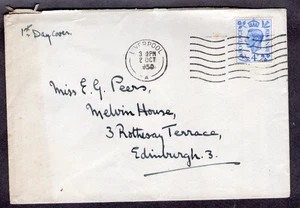 1st Day Cover.
LIVERPOOL
3 15 PM
2 OCT
1950
A
Miss E. G. Peers,
Melvin House,
3 Rothesay Terrace,
Edinburgh. 3.